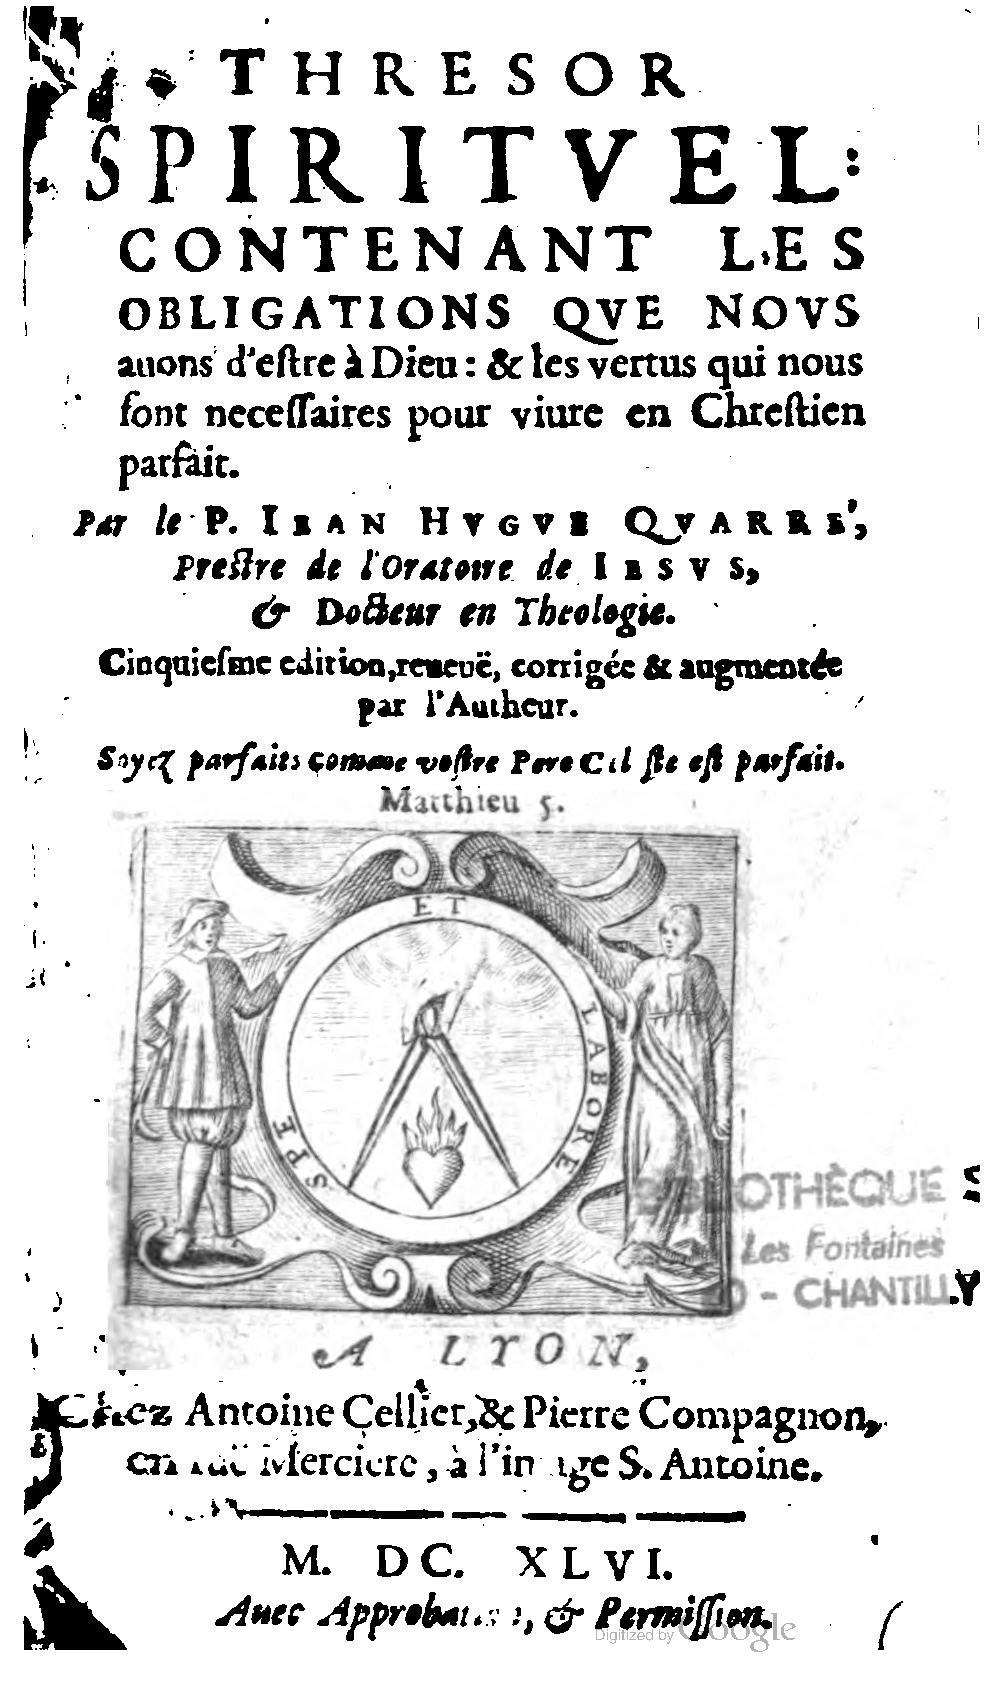 THRESOR
SPIRITVEL:
CONTENANT LES
OBLIGATIONS QVE NOVS
auons d'eſtre à Dieu: & les vertus qui nous
ſont neceſſaires pour viure en Chreſtien
parfait.
Par le P. IEAN HVGVE QVARRE',
Preſtre de l'Oratoire de IESVS,
& Docteur en Theologie.
Cinquieſme edition, reueuë, corrigée & augmentée
par l'Autheur.
Soyez parfaits comme voſtre Pere Celeſte eſt parfait.
Matthieu 5.
SPE ET LABORE
BIBLIOTHÈQUE
Les Fontaines
- CHANTILLY
A LYON,
Chez Antoine Cellier, & Pierre Compagnon,
en ruë Merciere, à l'image S. Antoine.
M. DC. XLVI.
Auec Approbation, & Permiſſion.
Digitized by Google